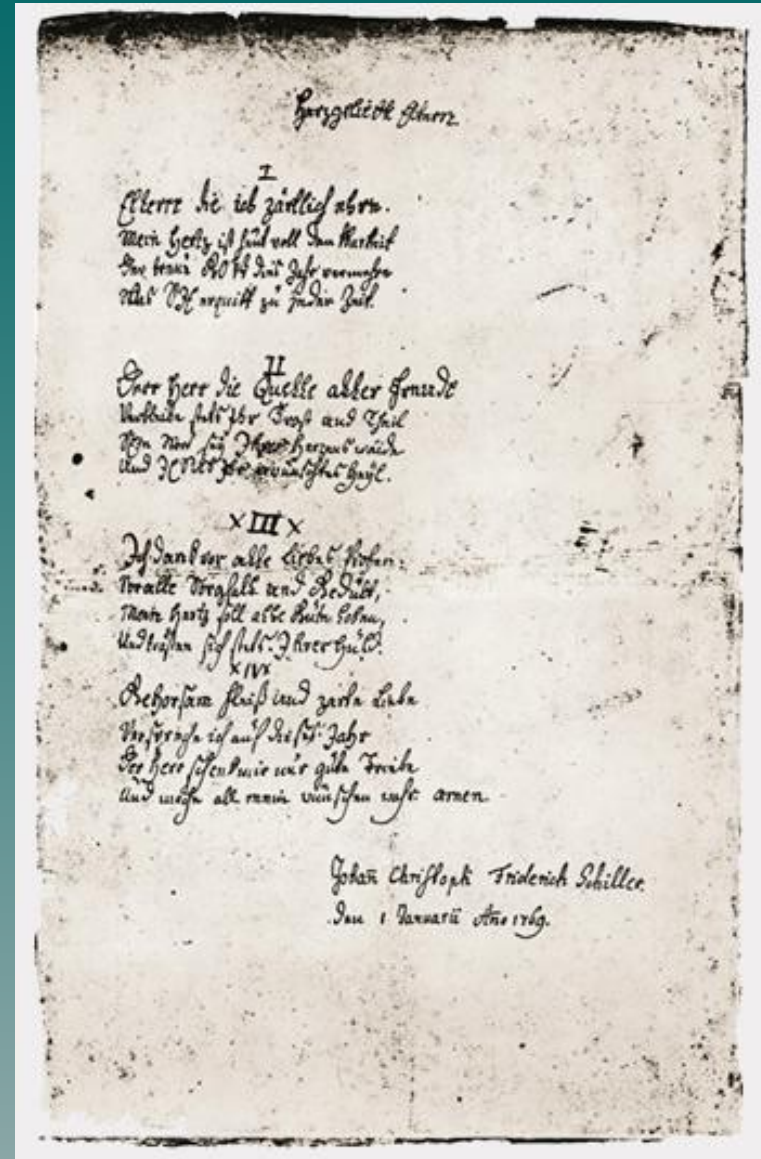 Herzgeliebte Eltern
I
Eltern die ich zärtlich ehre.
Mein Hertz ist heut voll Danckbarkeit
Der treue GOtt diß Jahr vermehre
Was SIe erquickt zu jeder Zeit.
II
Der Herr die Quelle aller Freude
Verbleibe stets Ihr Trost und Theil
Sein Wort sey Ihres Hertzens Weide
Und JEsus Ihr erwünschtes Heyl.
x III x
Ich danck vor alle Liebes Proben,
Vor alle Sorgfalt und Gedult,
Mein Hertz soll alle Güte loben,
Und trösten sich stets Ihrer Huld.
x IV x
Gehorsam Fleiß und zarte Liebe
Verspreche ich auf dieses Jahr
Der Herr schenk mir nur gute Triebe
Und mache all mein wünschen wahr. Amen.
Johann Christoph Friderich Schiller.
Den 1 Januarii Año 1769.